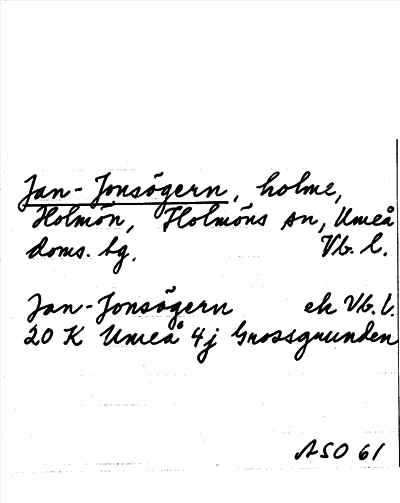 Jan-Jonsögern, holme,
Holmön, Holmöns sn, Umeå
doms. tg. Vb. l.
Jan-Jonsögern ek Vb. l.
20 K Umeå 4j Grossgrunden
ASO 61